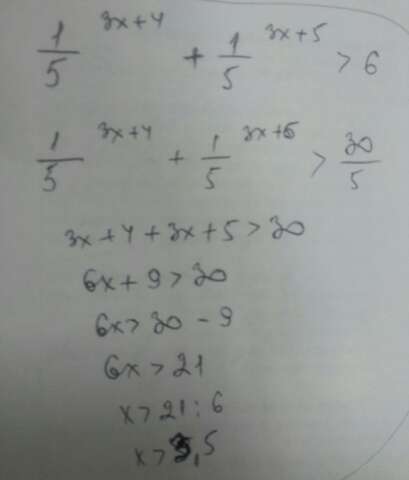 1/5 ^ 3x+4 + 1/5 ^ 3x+5 > 6
1/5 ^ 3x+4 + 1/5 ^ 3x+5 > 30/5
3x+4+3x+5>30
6x+9>30
6x>30-9
6x>21
x>21:6
x>3,5